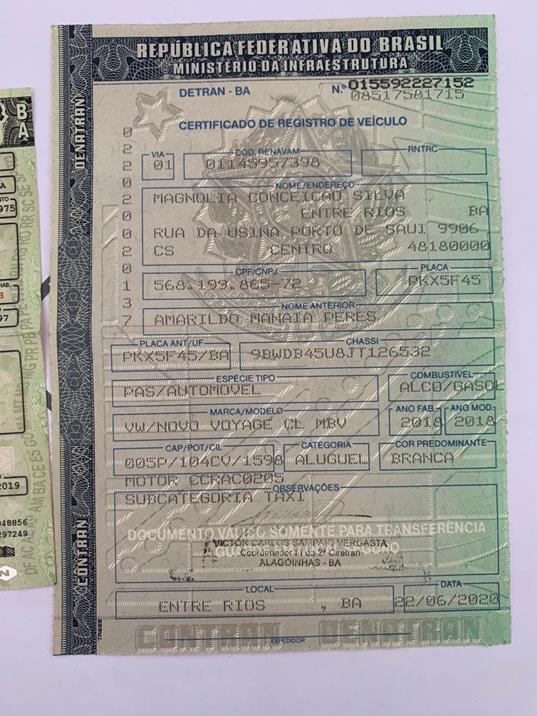 REPÚBLICA FEDERATIVA DO BRASIL
MINISTÉRIO DA INFRAESTRUTURA
DETRAN - BA N.º 015592227152
08517581715
CERTIFICADO DE REGISTRO DE VEÍCULO
VIA CÓD. RENAVAM RNTRC
01 01145957398
NOME/ENDEREÇO
MAGNOLIA CONCEICAO SILVA
ENTRE RIOS BA
RUA DA USINA PORTO DE SAUI 9906
CS CENTRO 48180000
CPF/CNPJ PLACA
568.199.865-72 PKX5F45
NOME ANTERIOR
AMARILDO MANAIA PERES
PLACA ANT/UF CHASSI
PKX5F45/BA 9BWDB45U8JT126532
ESPÉCIE TIPO COMBUSTÍVEL
PAS/AUTOMOVEL ALCO/GASOL
MARCA/MODELO ANO FAB. ANO MOD.
VW/NOVO VOYAGE CL MBV 2018 2018
CAP/POT/CIL CATEGORIA COR PREDOMINANTE
005P/104CV/1598 ALUGUEL BRANCA
MOTOR CCRAC0205
OBSERVAÇÕES
SUBCATEGORIA TAXI
DOCUMENTO VÁLIDO SOMENTE PARA TRANSFERÊNCIA
VICTOR CARLOS SAMPAIO VERGASTA
Coordenador II da 2ª Ciretran
ALAGOINHAS - BA
LOCAL DATA
ENTRE RIOS , BA 22/06/2020
CONTRAN DENATRAN
EXPEDIDOR
DENATRAN
CONTRAN
BA
975
97
2019
048856
297249